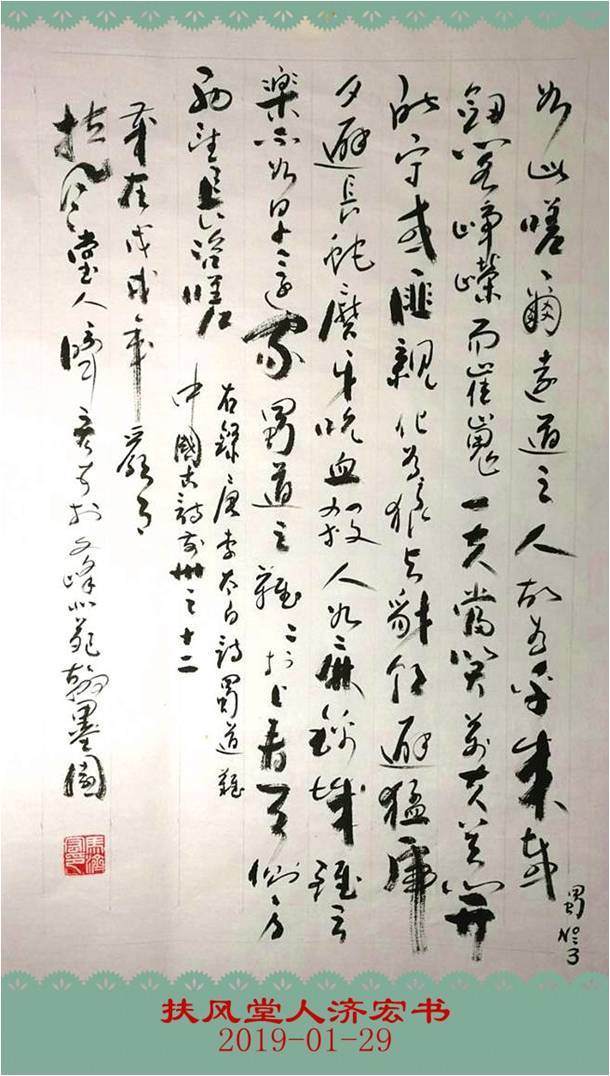 如此嗟爾遠道之人胡為乎來哉
劍閣崢嶸而崔嵬一夫當関萬夫莫開
所守或匪親化為狼与豺朝避猛虎
夕避長蛇磨牙吮血殺人如麻錦城雖云
樂不如早還家蜀道之難〻於上青天側身
西望長咨嗟
右錄唐李太白詩蜀道難
中國古詩卅之十二
歲在戊戌年
扶風堂人濟宏書於文峰北苑翰墨園
蜀 No 3
扶风堂人济宏书
2019-01-29